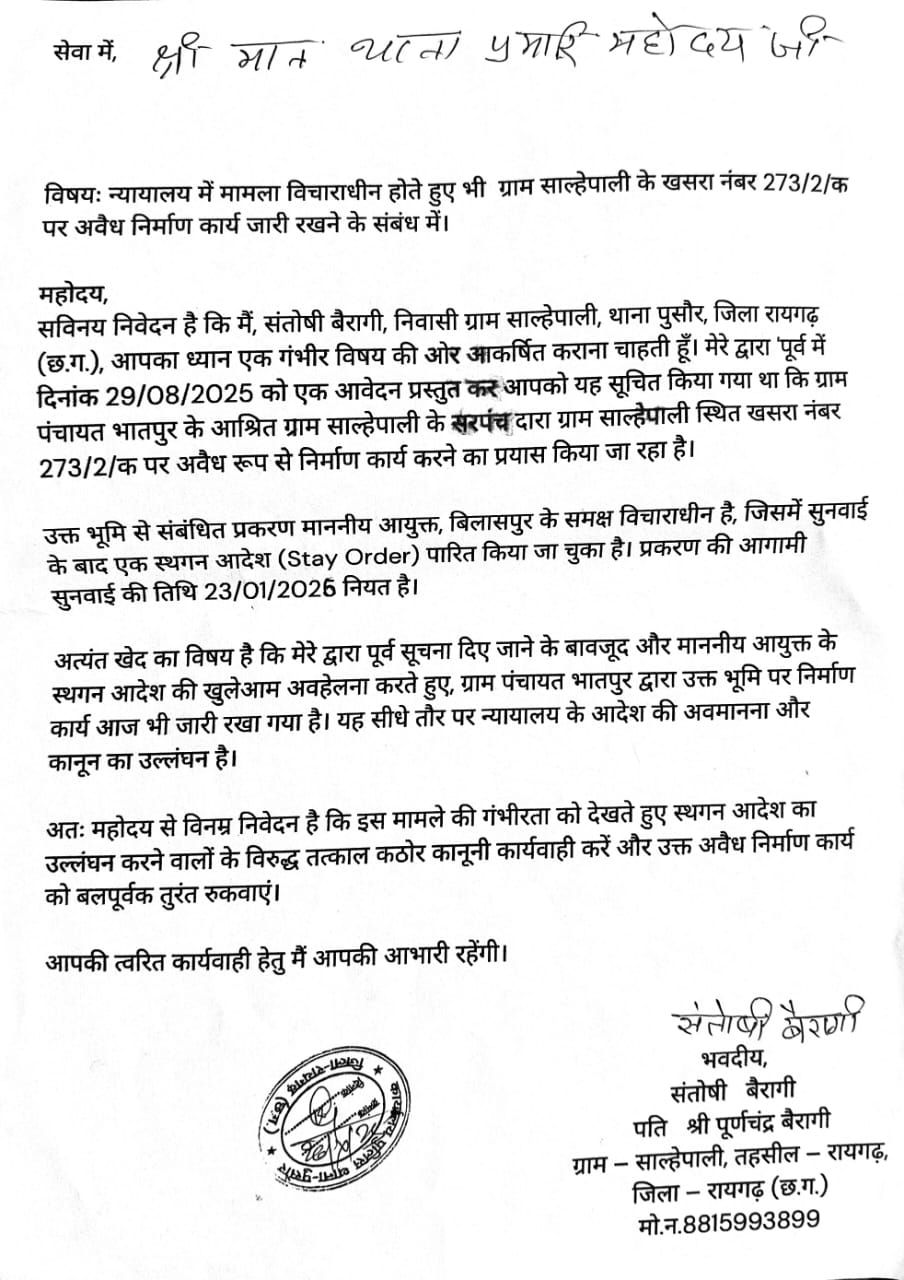 सेवा में, श्री मान थाना प्रभारि महोदय जी
विषयः न्यायालय में मामला विचाराधीन होते हुए भी ग्राम साल्हेपाली के खसरा नंबर 273/2/क
पर अवैध निर्माण कार्य जारी रखने के संबंध में।
महोदय,
सविनय निवेदन है कि मैं, संतोषी बैरागी, निवासी ग्राम साल्हेपाली, थाना पुसौर, जिला रायगढ़
(छ.ग.), आपका ध्यान एक गंभीर विषय की ओर आकर्षित कराना चाहती हूँ। मेरे द्वारा 'पूर्व में
दिनांक 29/08/2025 को एक आवेदन प्रस्तुत कर आपको यह सूचित किया गया था कि ग्राम
पंचायत भातपुर के आश्रित ग्राम साल्हेपाली के सरपंच दारा ग्राम साल्हेपाली स्थित खसरा नंबर
273/2/क पर अवैध रूप से निर्माण कार्य करने का प्रयास किया जा रहा है।
उक्त भूमि से संबंधित प्रकरण माननीय आयुक्त, बिलासपुर के समक्ष विचाराधीन है, जिसमें सुनवाई
के बाद एक स्थगन आदेश (Stay Order) पारित किया जा चुका है। प्रकरण की आगामी
सुनवाई की तिथि 23/01/2026 नियत है।
अत्यंत खेद का विषय है कि मेरे द्वारा पूर्व सूचना दिए जाने के बावजूद और माननीय आयुक्त के
स्थगन आदेश की खुलेआम अवहेलना करते हुए, ग्राम पंचायत भातपुर द्वारा उक्त भूमि पर निर्माण
कार्य आज भी जारी रखा गया है। यह सीधे तौर पर न्यायालय के आदेश की अवमानना और
कानून का उल्लंघन है।
अतः महोदय से विनम्र निवेदन है कि इस मामले की गंभीरता को देखते हुए स्थगन आदेश का
उल्लंघन करने वालों के विरुद्ध तत्काल कठोर कानूनी कार्यवाही करें और उक्त अवैध निर्माण कार्य
को बलपूर्वक तुरंत रुकवाएं।
आपकी त्वरित कार्यवाही हेतु मैं आपकी आभारी रहेंगी।
संतोषी बैरागी
भवदीय,
संतोषी बैरागी
पति श्री पूर्णचंद्र बैरागी
ग्राम – साल्हेपाली, तहसील – रायगढ़,
जिला – रायगढ़ (छ.ग.)
मो.न.8815993899
कार्यालय पुलिस थाना-पुसौर
जिला-रायगढ़ (छ.ग.)